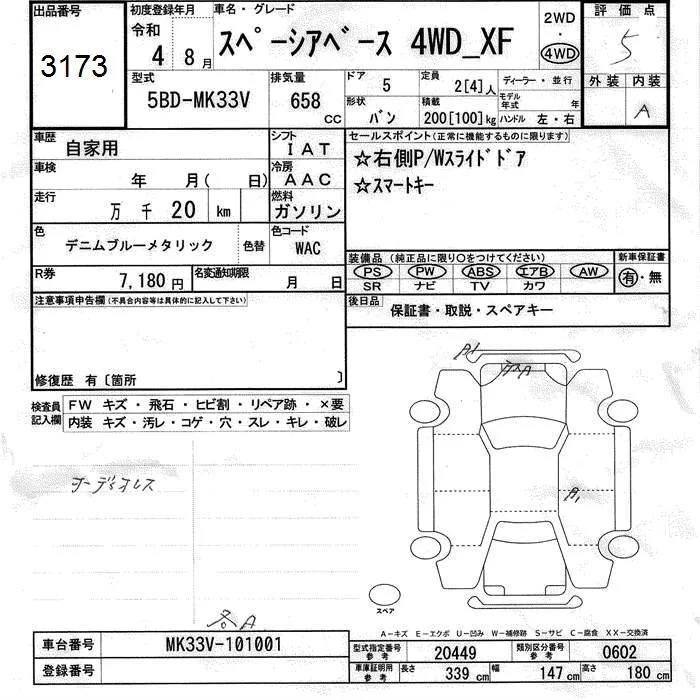 出品番号
3173
初度登録年月
令和
4 8月
車名・グレード
スペーシアベース 4WD_XF
2WD
・
4WD
評価点
5
外装 内装
A
型式
5BD-MK33V
排気量
658 cc
ドア 5
形状 バン
定員 2[4]人
積載 200[100]kg
ディーラー・並行
モデル年式 年
ハンドル 左・右
車歴 自家用
シフト IAT
車検 年 月( 日)
冷房 AAC
走行 万 千 20 km
燃料 ガソリン
色 デニムブルーメタリック 色替
色コード WAC
R券 7,180円
名変通知期限 月 日
セールスポイント(正常に機能するものに限ります)
☆右側P/Wスライドドア
☆スマートキー
装備品(純正品に限り○をつけてください)
PS PW ABS エアB AW
SR ナビ TV カワ
新車保証書
有・無
後日品 保証書・取説・スペアキー
注意事項申告欄(不具合内容等は具体的に記入して下さい)
修復歴 有〔箇所 〕
検査員記入欄
FW キズ・飛石・ヒビ割・リペア跡・×要
内装 キズ・汚レ・コゲ・穴・スレ・キレ・破レ
オーディオレス
A1
A1
スペア
A-キズ E-エクボ U-凹み W-補修跡 S-サビ C-腐食 XX-交換済
車台番号 MK33V-101001
登録番号
型式指定番号 参考 20449
類別区分番号 参考 0602
車庫証明用 参考 長さ 339 cm 幅 147 cm 高さ 180 cm